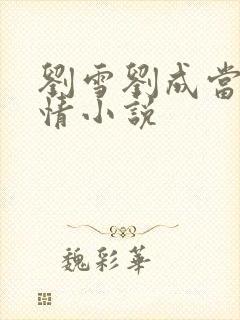 劉雪劉成當
情小說
魏彩華